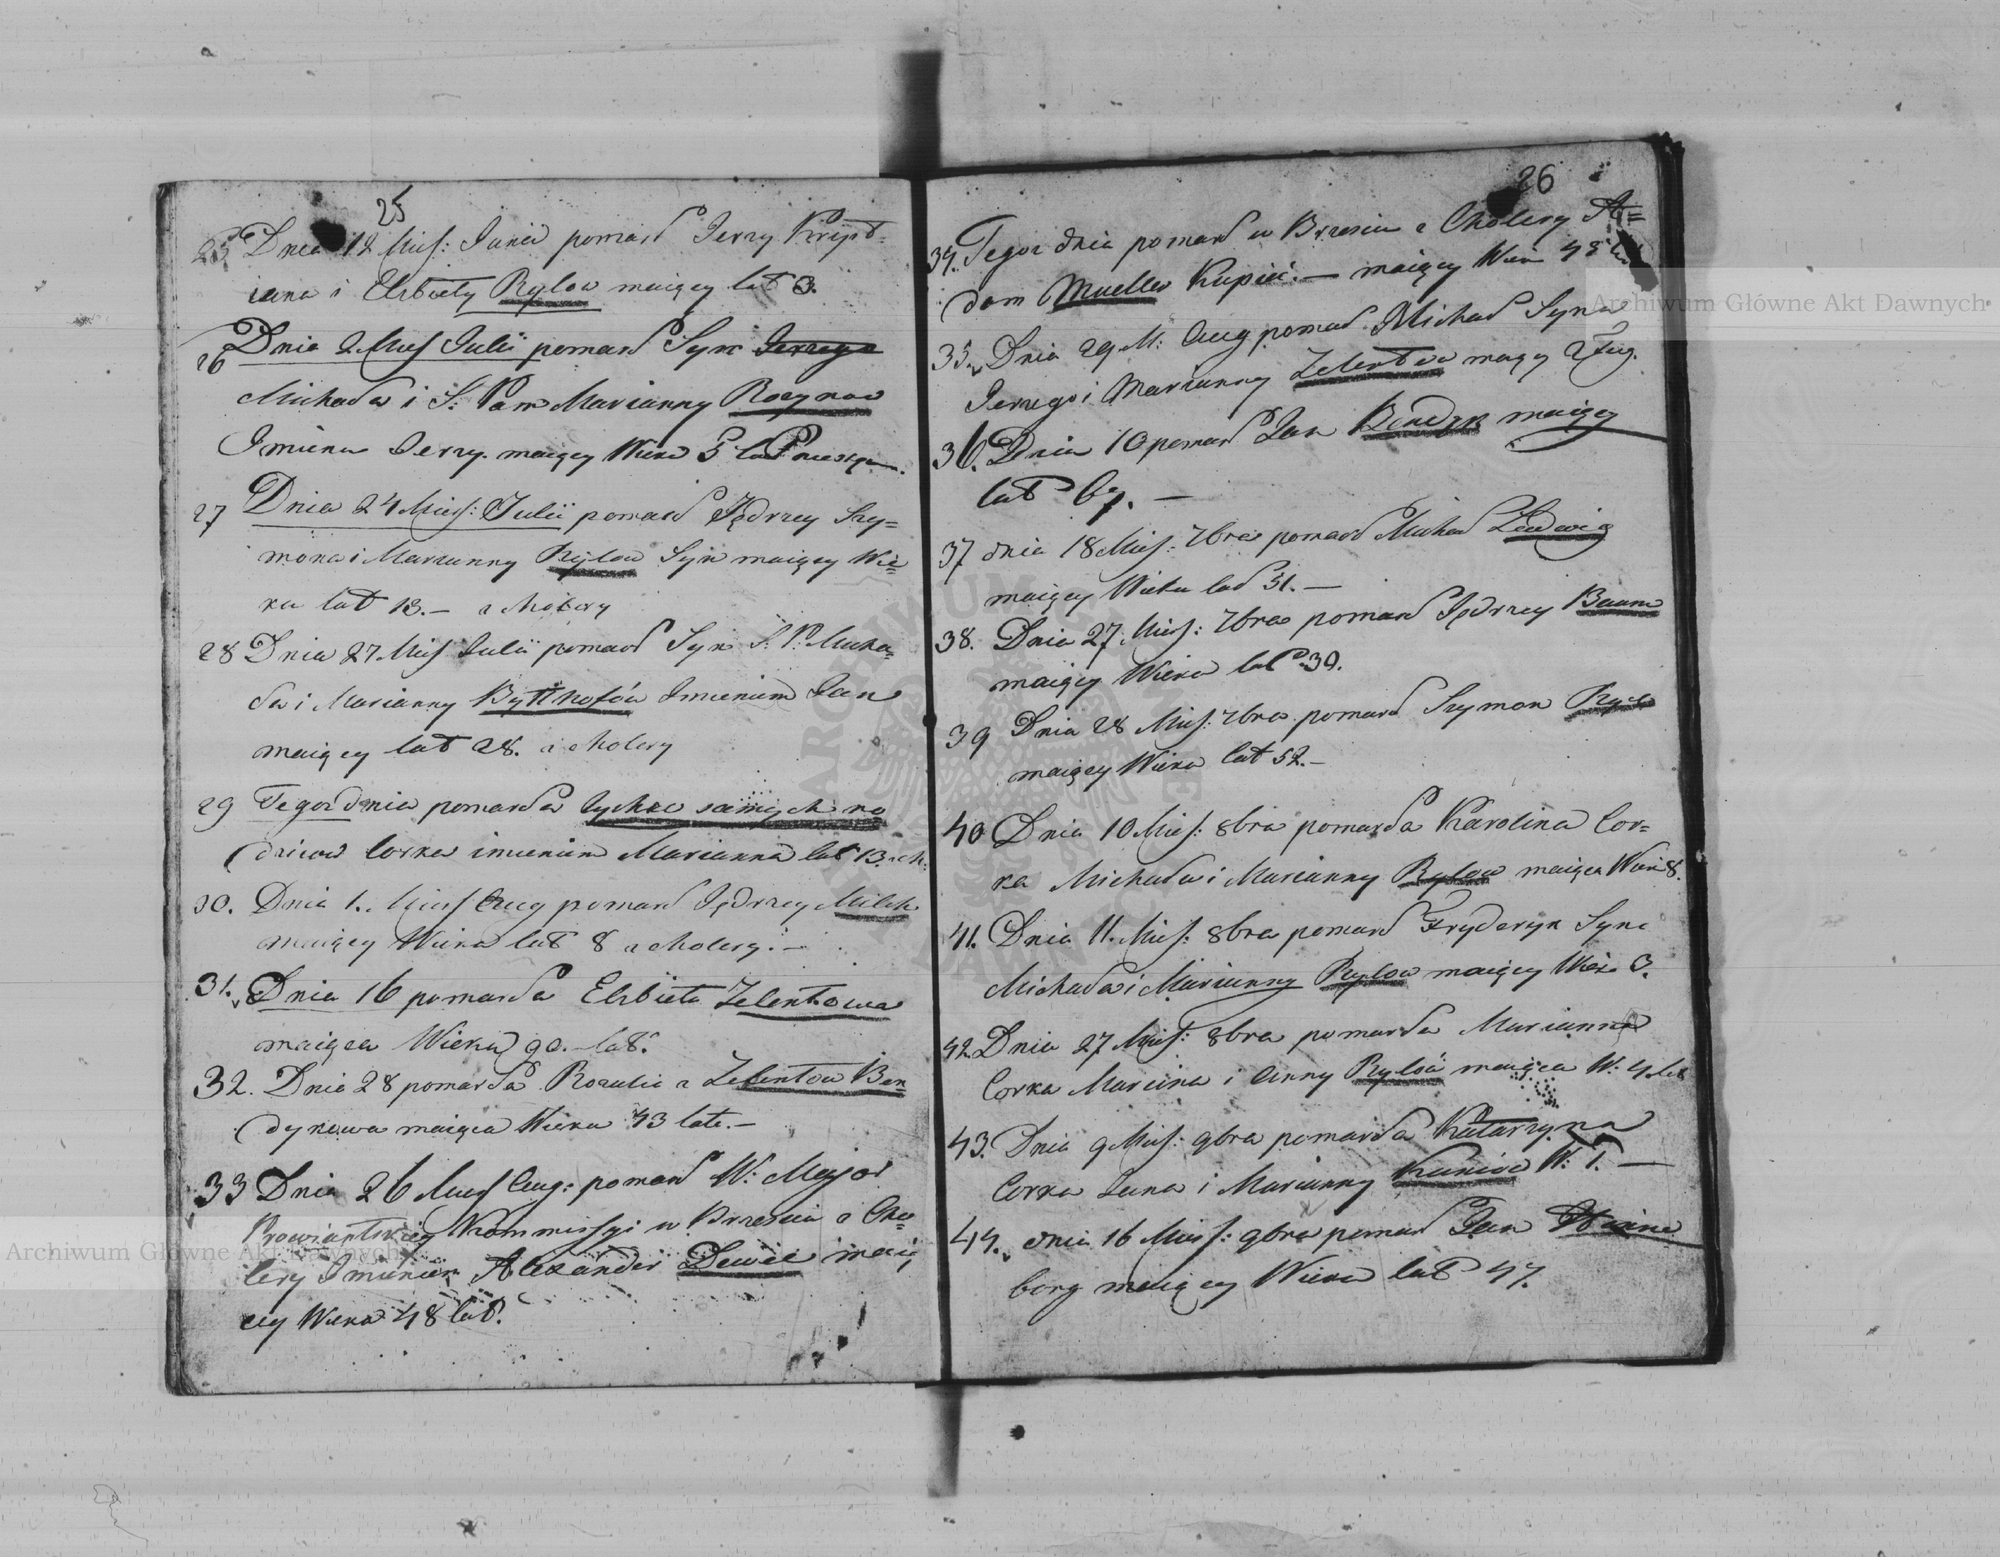 25
25 Dnia 12 Mies: Junii pomarł Jerzy Kryst=
iana i Elżbiety Rylow maiący lat 3.
26 Dnia 2 Mies Julii pomarł Syn Jerzego
Michała i S: Pam Marianny
Imieniem Jerzy. maiący Wieku 5 lat
27 Dnia 24 Mies: Julii pomarł Jędrzey Szy=
mona i Marianny Rylow Syn maiący Wie=
ku lat 13. – z Cholery
28 Dnia 27 Mies Julii pomarł Syn S. P. Micha=
ła i Marianny Imieniem Jan
maiący lat 28. z Cholery
29 Tegoż dnia pomarła tychże samych ro
dziców Corka imieniem Marianna lat 13. z Ch:
30. Dnia 1. Mies Aug pomarł Jędrzey Milch
maiący Wieku lat 8 z Cholery. –
31. Dnia 16 pomarła Elżbieta Zelentowa
maiąca Wieku 90. – lat.
32. Dnia 28 pomarła Rozalia z Zelentow Ben=
dykowa maiąca Wieku 43 lata. –
33 Dnia 26 Mies Aug: pomarł W: Major
Prowiantskiey Kommissyi w Brzesciu z Cho=
lery Imieniem Alexander maią
cy Wieku 48 lat.
26
34. Tegoż dnia pomarł w Brzesciu z Cholery A=
dam Mueller Kupiec. – maiący Wieku 48
35. Dnia 29 M: Aug pomarł Michał Syn
Jerzego i Marianny Zelentow 2
36. Dnia 10 pomarł Jan Bendyk maiący
lat 67. –
37 dnia 18 Mies: 7bra pomarł Michał Ludwig
maiący Wieku lat 51. –
38. Dnia 27 Mies: 7bra pomarł Jędrzey Baum
maiący Wieku lat 30.
39 Dnia 28 Mies: 7bra pomarł Szymon Ryl
maiący Wieku lat 52. –
40 Dnia 10 Mies: 8bra pomarła Karolina Cor=
ka Michała i Marianny Rylow maiąca Wieku 8.
41. Dnia 11. Mies: 8bra pomarł Fryderyk Syn
Michała i Marianny Rylow maiący Wiek 3.
42. Dnia 27 Mies: 8bra pomarła Marianna
Corka Marcina i Anny Rylów maiąca W: 4 lat
43. Dnia 9 Mies: 9bra pomarła Katarzyna
Corka Jana i Marianny W: 1. –
44. dnia 16 Mies: 9bra pomarł Jan
borg maiący Wieku lat 47.
Archiwum Główne Akt Dawnych
Archiwum Główne Akt Dawnych